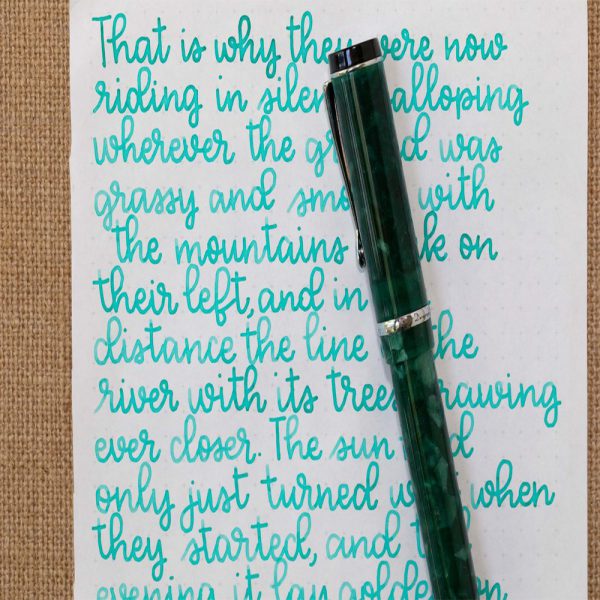 That is why they were now
riding in silen alloping
wherever the gr d was
grassy and smo with
the mountains k on
their left, and in
distance the line the
river with its trees rawing
ever closer. The sun d
only just turned w when
they started, and t
evening it lay golden on